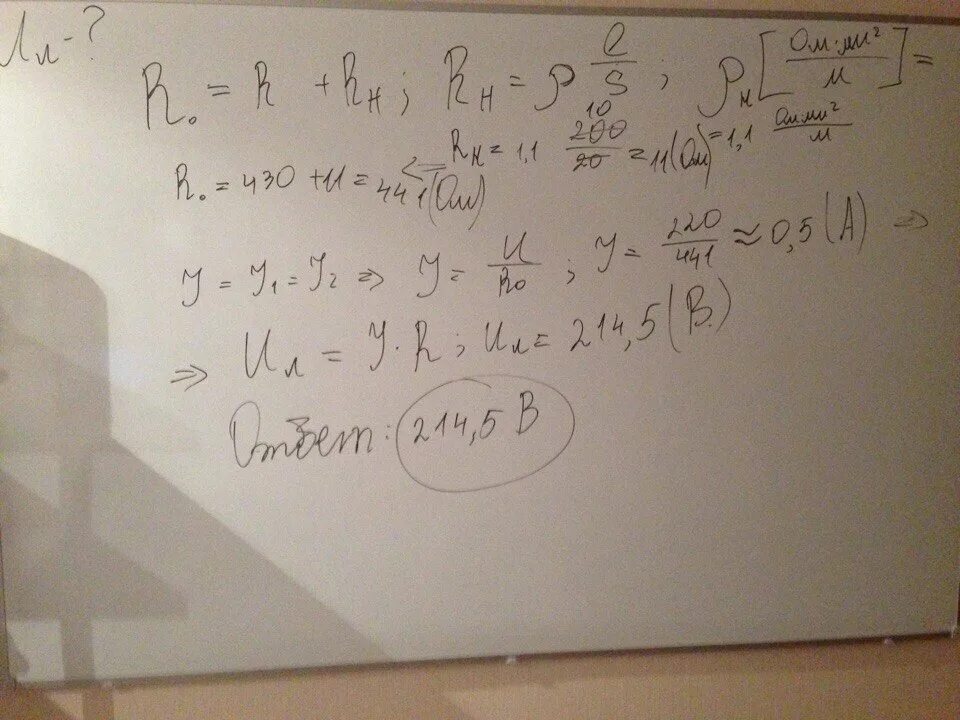 Uл - ?
R₀ = R + Rн ; Rн = ρ l/S ; ρн [Ом·мм²/м] =
= 1,1 Ом·мм²/м
Rн = 1,1 200/20 10 = 11 (Ом)
R₀ = 430 + 11 = 441 (Ом) ⇐
У = У₁ = У₂ ⇒ У = U/R₀ ; У = 220/441 ≈ 0,5 (А) ⇒
⇒ Uл = У · R ; Uл = 214,5 (В.)
Ответ: 214,5 В